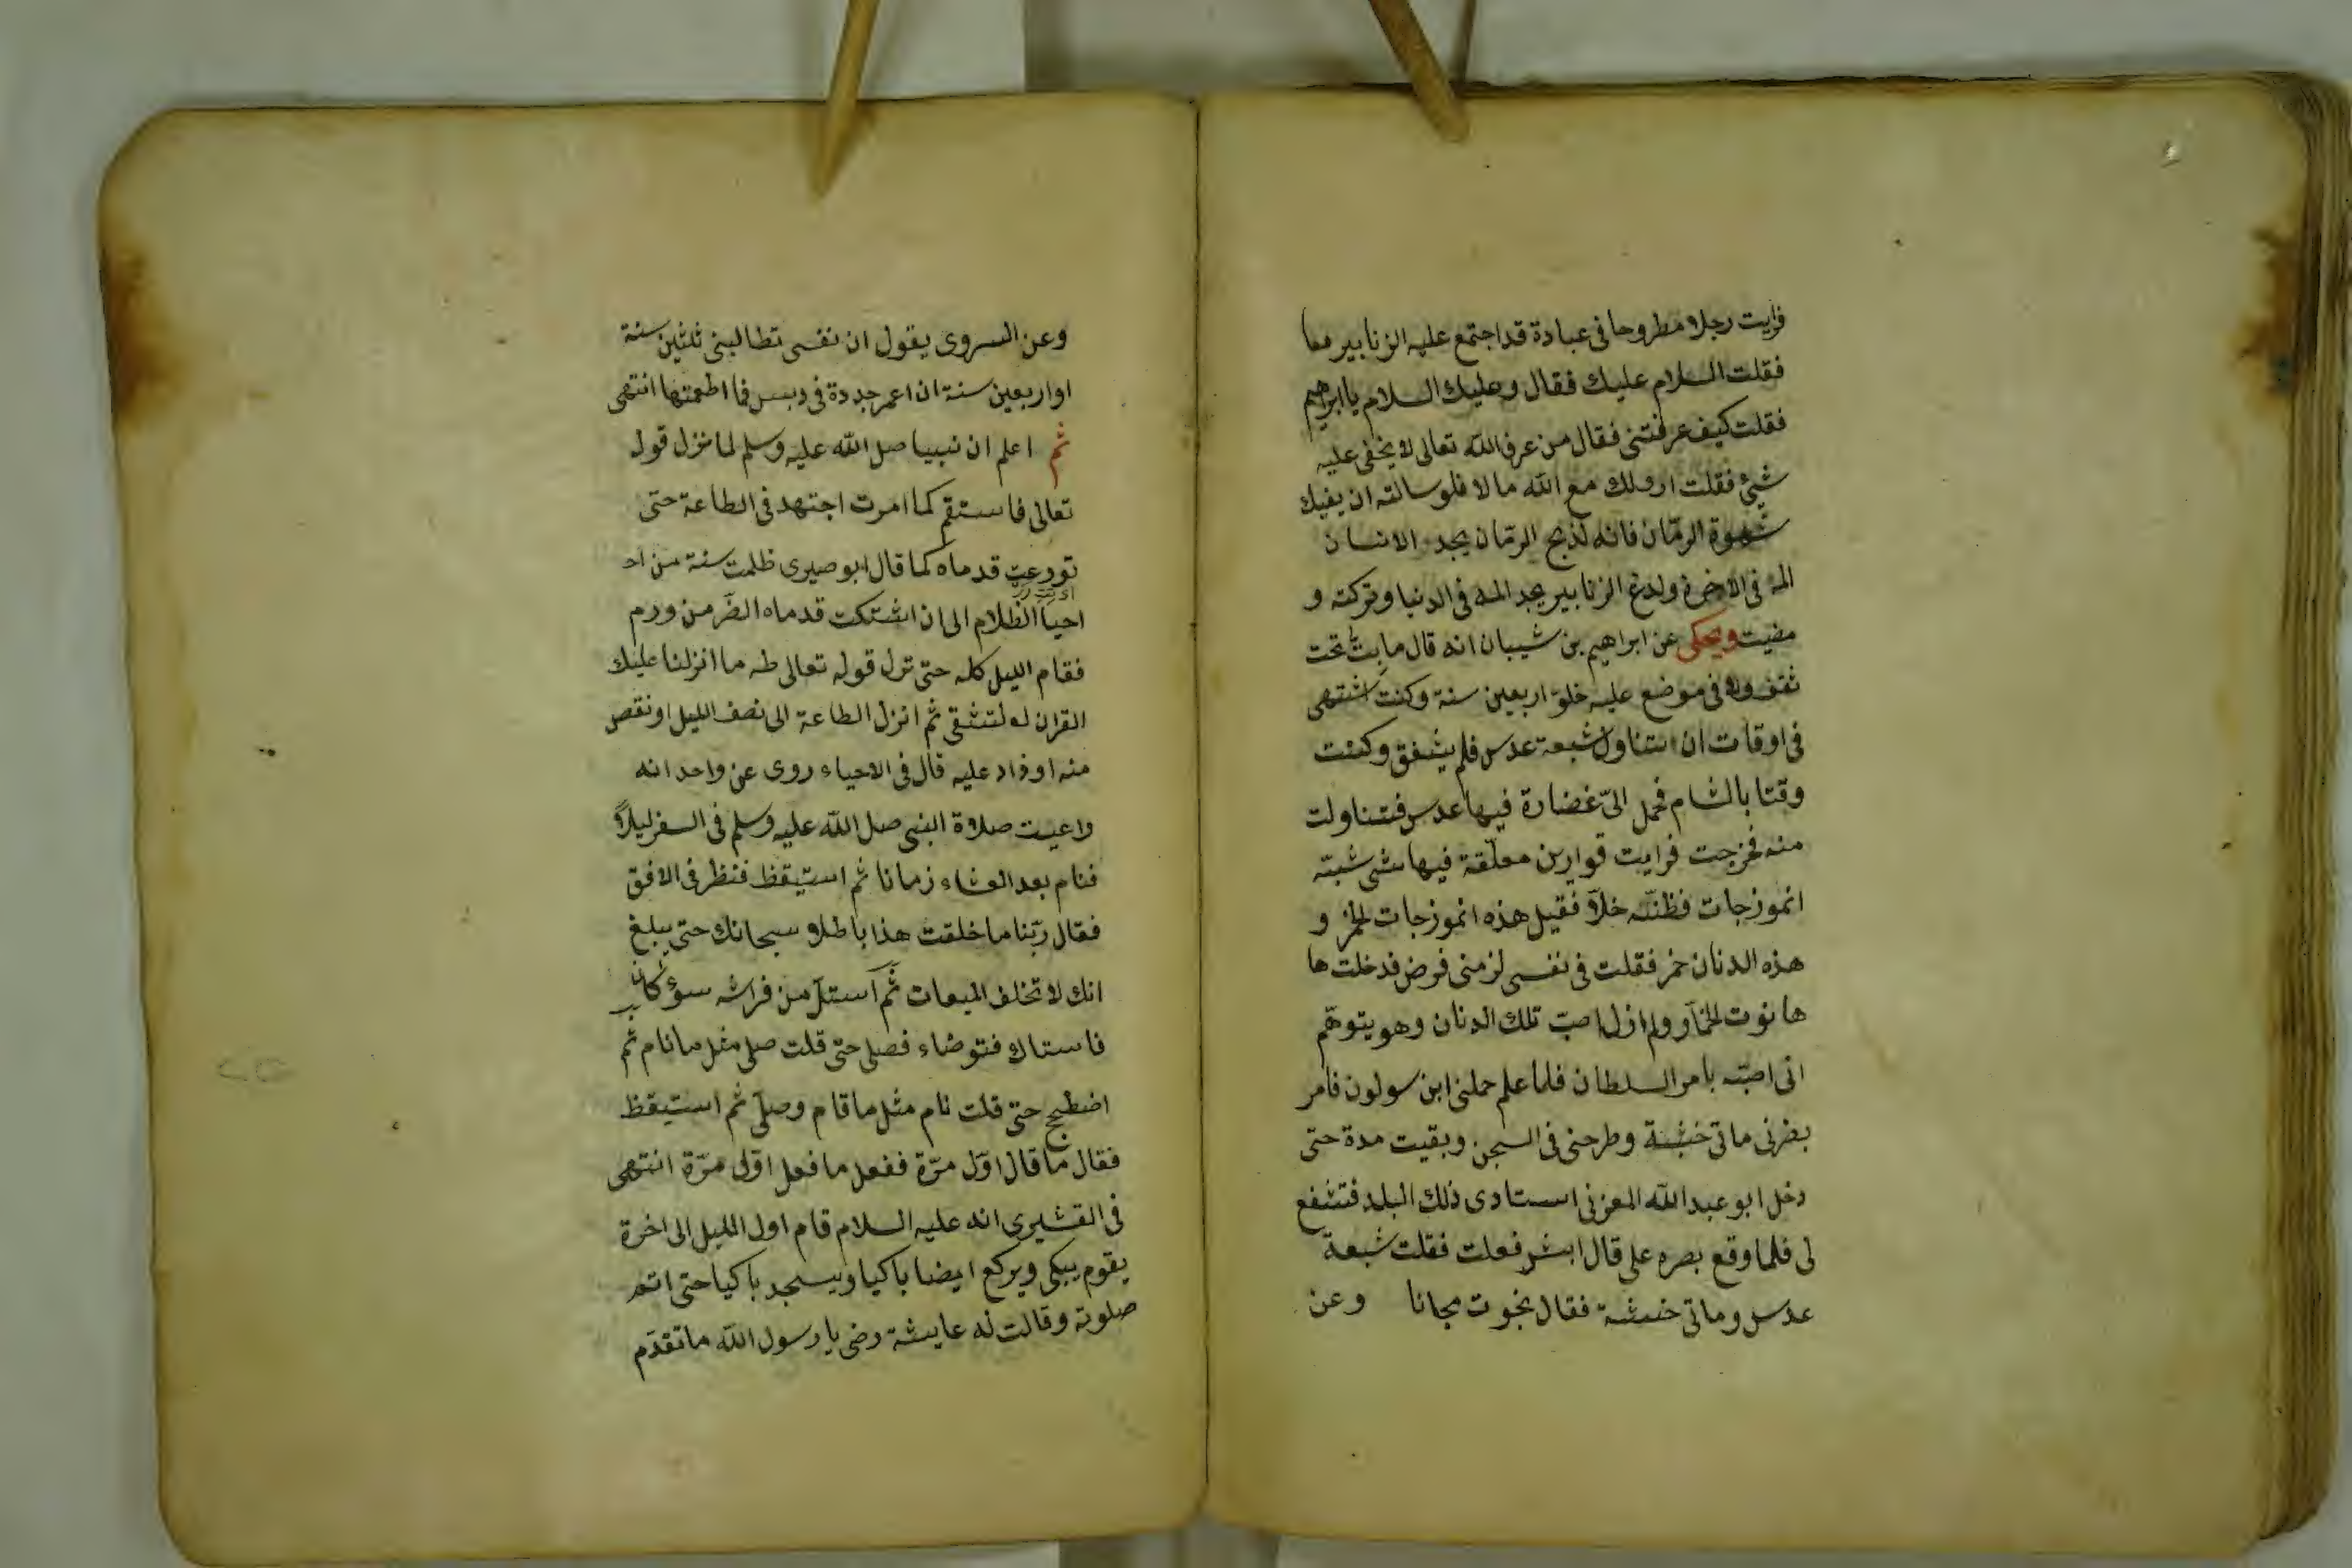 فرايت رجلا مطروحا فى عبادة قد اجتمع عليه الزنابير معا
فقلت السلام عليك فقال وعليك السلام يا ابراهيم
فقلت كيف عرفتنى فقال من عرف الله تعالى لا يخفى عليه
شيئ فقلت ارى لك مع الله مالا فلو سالته ان يفيك
شهوة الرمّان فانه لذبح الرمّان يجد الانسان
المه فى الاخرة ولدغ الزنابير يجد المه فى الدنيا وتركته و
مضيت ويحكى عن ابراهيم بن شيبان انه قال ما بتّ تحت
ثقف ولا فى موضع عليه خلق اربعين سنة وكنت اشتهى
فى اوقات ان اتناول شبعة عدس فلم يتفق وكنت
وقتا بالشام فحمل الىّ غضارة فيها عدس فتناولت
منه فخرجت فرايت قوارين معلّقة فيها شى شبّه
انموزجات فظننته خلّا فقيل هذه انموزجات الخمر و
هذه الدنان خمر فقلت فى نفسى لزمنى فرض فدخلت ها
هانوت الخمّار ولم ازل اصبّ تلك الدنان وهو يتوهّم
انى اصبّه بامر السلطان فلما علم حملنى ابن سولون فامر
بضربى ماتى خشبة وطرحنى فى السجن وبقيت مدة حتى
دخل ابو عبد الله المغربى استادى ذلك البلد فتشفع
لى فلما وقع بصره على قال ايش فعلت فقلت شبعة
عدس وماتى خشبة فقال نجوت مجانا وعن
وعن السروى يقول ان نفسى تطالبنى ثلثين سنة
او اربعين سنة ان اغمر جددة فى دبس فما اطعمتها انتهى
ثم اعلم ان نبينا صلى الله عليه وسلم لما نزل قوله
تعالى فاستقم كما امرت اجتهد فى الطاعة حتى
تورعت قدماه كما قال ابوصيرى ظلمت سنة من
احيا الظلام الى ان اشتكت قدماه الضرّ من ورم
فقام الليل كله حتى نزل قوله تعالى طه ما انزلنا عليك
القران لتشقى ثم انزل الطاعة الى نصف الليل او نقص
منه او زاد عليه قال فى الاحياء روى عن واحد انه
راعيت صلاة النبى صلى الله عليه وسلم فى السفر ليلاً
فنام بعد العشاء زمانا ثم استيقظ فنظر فى الافق
فقال ربّنا ما خلقت هذا باطلا سبحانك حتى يبلغ
انك لا تخلف الميعات ثم استلّ من فراشه
فاستاك فتوضاء فصلى حتى قلت صلى مثل ما نام ثم
اضطجع حتى قلت نام مثل ما قام وصلّى ثم استيقظ
فقال ما قال اوّل مرّة ففعل ما فعل اوّل مرّة انتهى
فى القشيرى انه عليه السلام قام اول الليل الى اخرة
يقوم يبكى ويركع ايضا باكيا ويسجد باكيا حتى اتم
صلوته وقالت له عايشة رضى يا رسول الله ما تقدّم